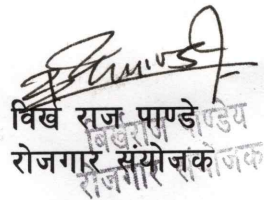 विख राज पाण्डे
रोजगार संयोजक
बिखराज पाण्डेय
रोजगार संयोजक